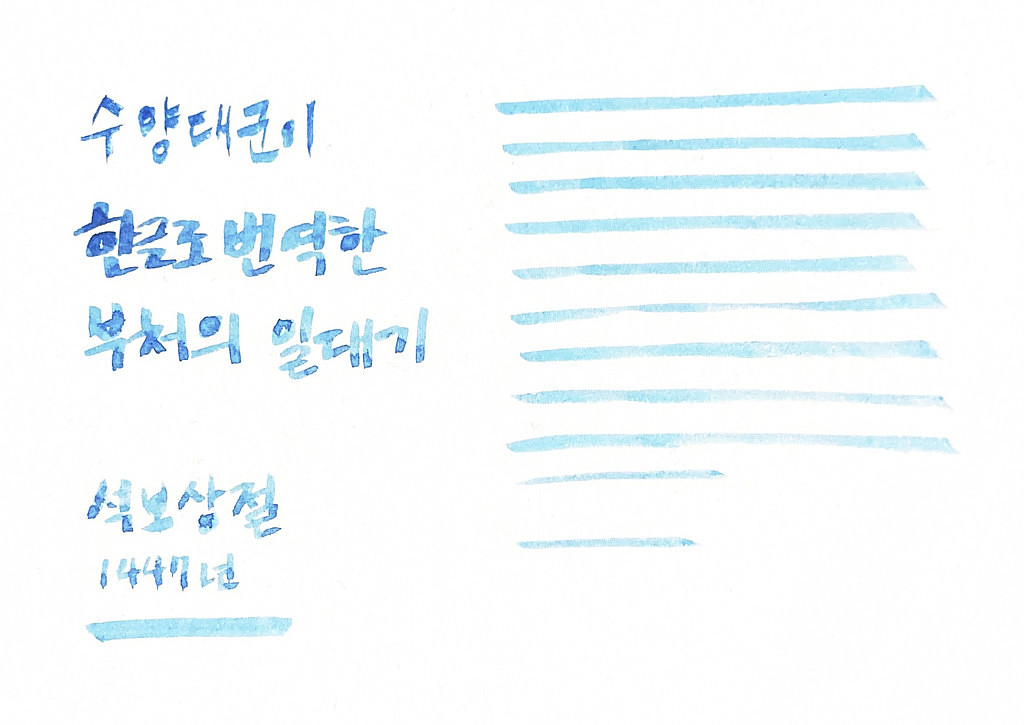 수양대군이
한글로 번역한
부처의 일대기
석보상절
1447년